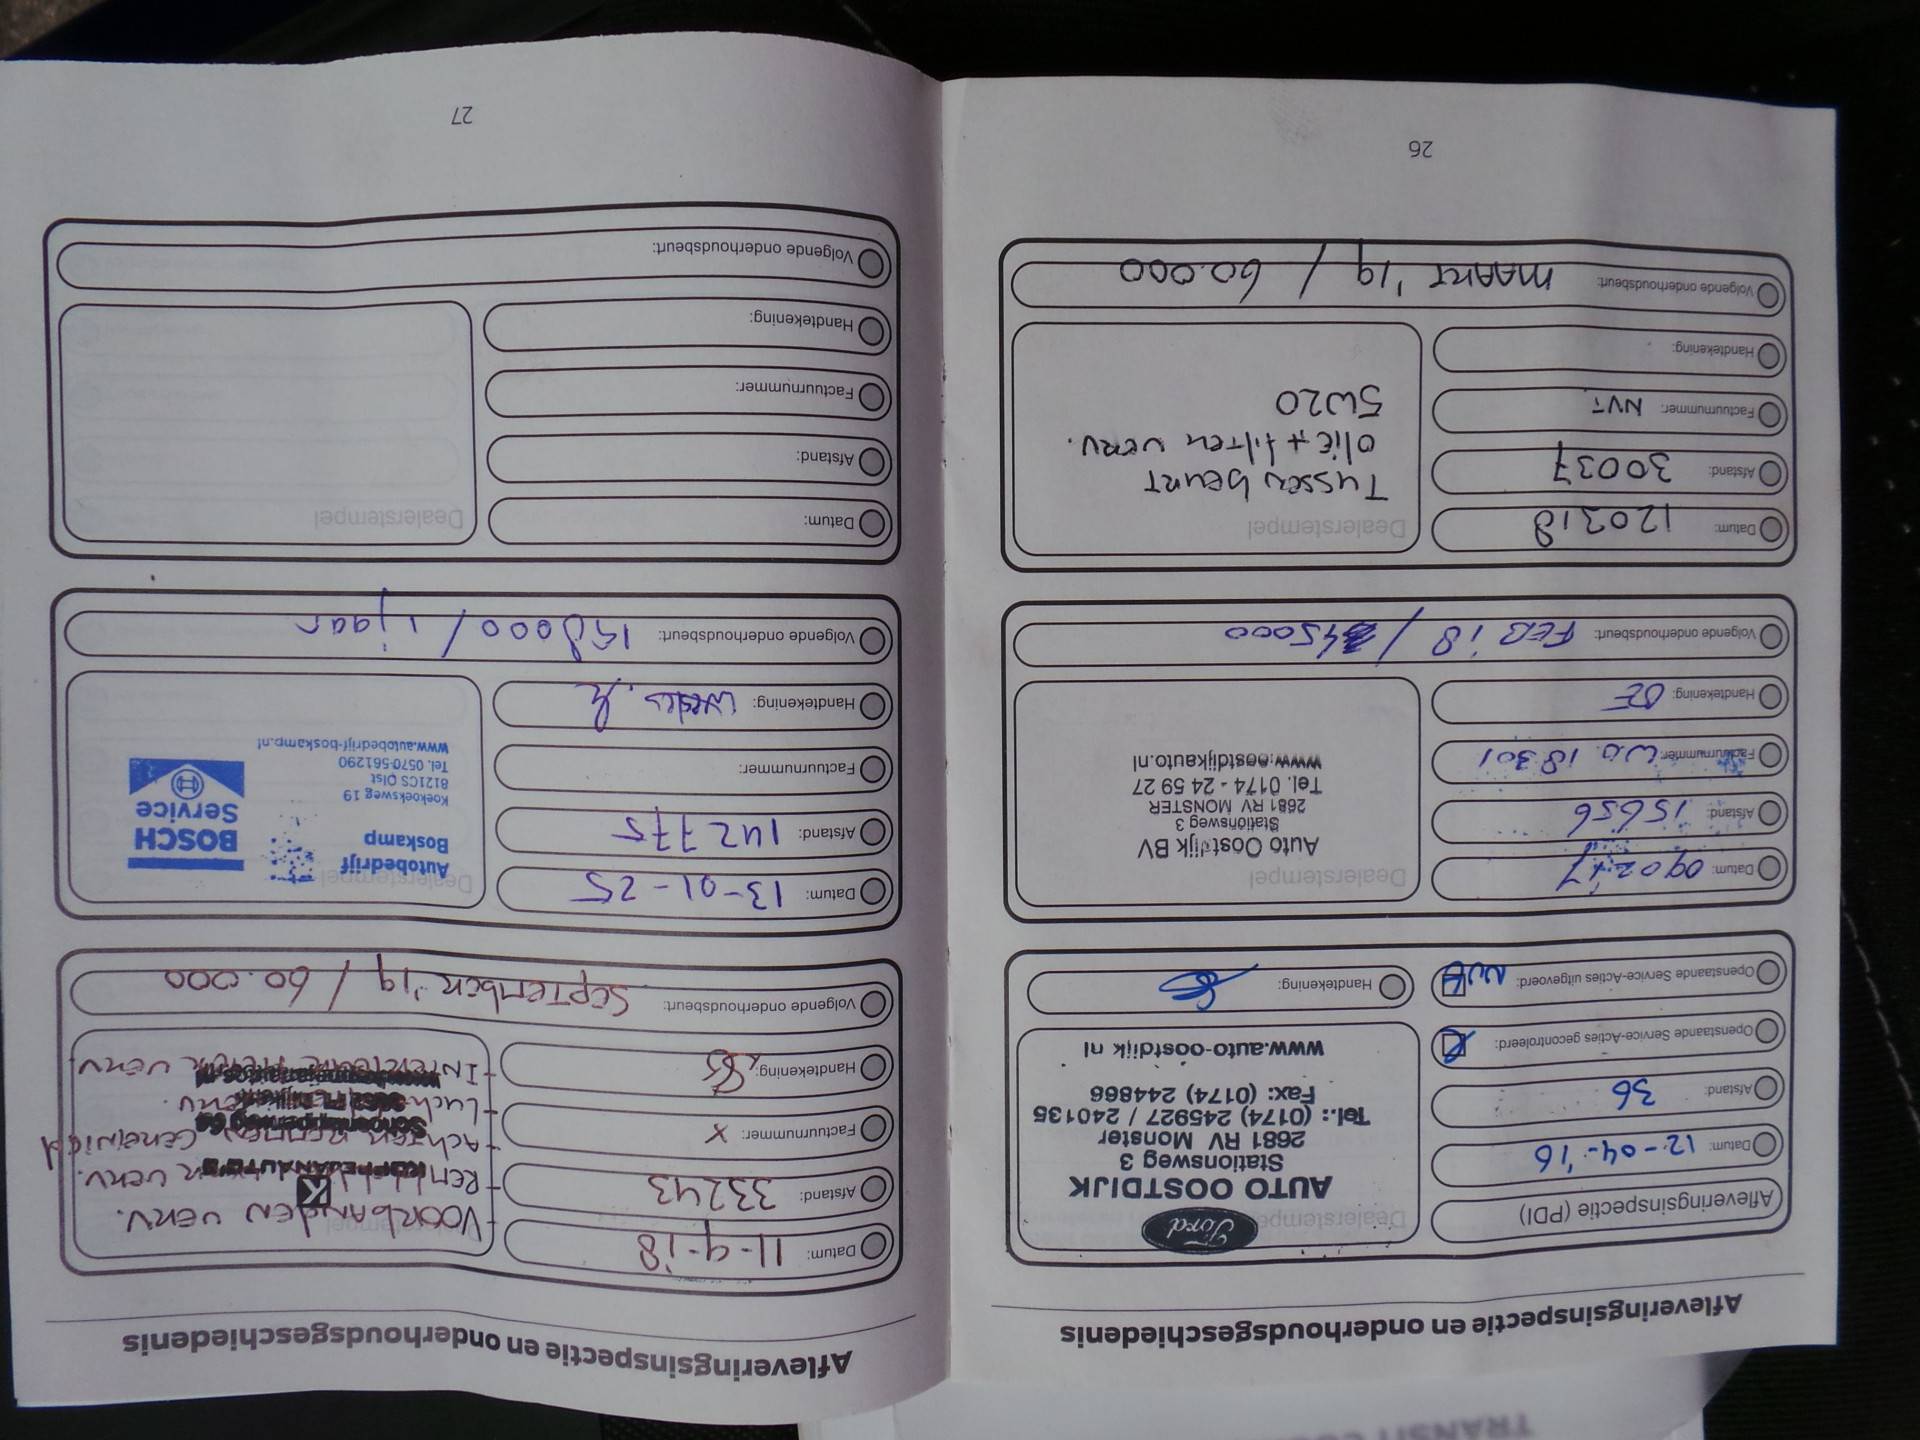 Afleveringsinspectie en onderhoudsgeschiedenis
Afleveringsinspectie (PDI)
Datum: 12-04-'16
Afstand: 36
Openstaande Service-Acties gecontroleerd:
Openstaande Service-Acties uitgevoerd:
Dealerstempel
Ford
AUTO OOSTDIJK
Stationsweg 3
2681 RV Monster
Tel.: (0174) 245927 / 240135
Fax: (0174) 244866
www.auto-oostdijk nl
Handtekening:
Datum: 090217
Afstand: 15656
Factuurnummer: W.O. 18301
Handtekening:
Dealerstempel
Auto Oostdijk BV
Stationsweg 3
2681 RV MONSTER
Tel. 0174 - 24 59 27
www.oostdijkauto.nl
Volgende onderhoudsbeurt: FEB '18 / 45000
Datum: 120318
Afstand: 30037
Factuurnummer: NVT
Handtekening:
Dealerstempel
Tussen beurt
olie + filter verv.
5W20
Volgende onderhoudsbeurt: MAART '19 / 60.000
26
Afleveringsinspectie en onderhoudsgeschiedenis
Datum: 11-9-18
Afstand: 33243
Factuurnummer: X
Handtekening:
- VOORBANDEN VERV.
- ACHTER REMMEN GEREINIGD
- INTERIEUR FILTER VERV.
Volgende onderhoudsbeurt: SEPTEMBER '19 / 60.000
Datum: 13-01-25
Afstand: 142775
Factuurnummer:
Handtekening:
Dealerstempel
Autobedrijf
Boskamp
Koekoeksweg 19
8121CS Olst
Tel. 0570-561290
www.autobedrijf-boskamp.nl
BOSCH
Service
Volgende onderhoudsbeurt: 158000 / 1 jaar
Datum:
Afstand:
Factuurnummer:
Handtekening:
Dealerstempel
Volgende onderhoudsbeurt:
27
TRANSIT